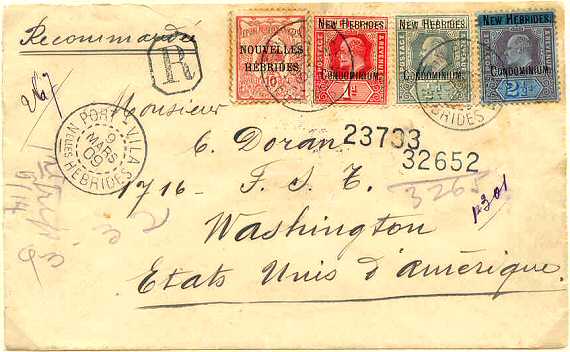 Recommandée
R
NOUVELLES
HÉBRIDES
10
NEW HEBRIDES.
CONDOMINIUM.
POSTAGE
& REVENUE
1d
NEW HEBRIDES.
CONDOMINIUM.
POSTAGE
& REVENUE
NEW HEBRIDES.
CONDOMINIUM.
2½d
HEBRIDES
PORT-VILA
9
MARS
09
NOUVLES HEBRIDES
Monsieur
C. Doran
23733
32652
1716 - F. S. T.
3265
Washington
Etats Unis d'amérique.